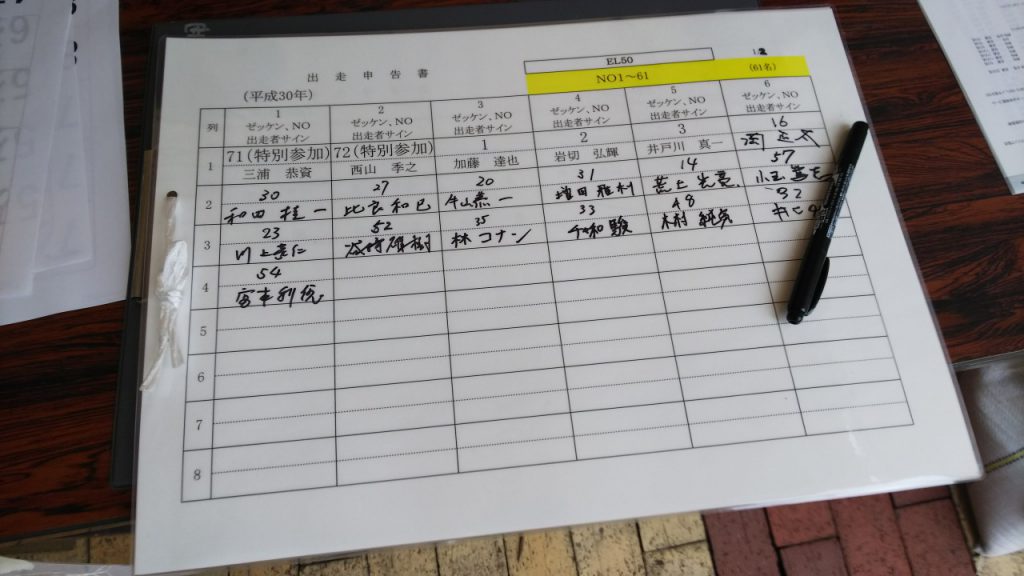 EL50
出走申告書
NO1～61 (61名)
(平成30年)
列 1 2 3 4 5 6
ゼッケン、NO ゼッケン、NO ゼッケン、NO ゼッケン、NO ゼッケン、NO ゼッケン、NO
出走者サイン 出走者サイン 出走者サイン 出走者サイン 出走者サイン 出走者サイン
1 71(特別参加) 72(特別参加) 1 2 3 16
三浦 恭資 西山 季之 加藤 達也 岩切 弘輝 井戸川 真一
2 30 27 20 31 14 57
和田 桂一 比良 和巳 増田 雅利
3 23 52 35 33 48
林 コナン 駿 木村
4 54
宮本
5
6
7
8